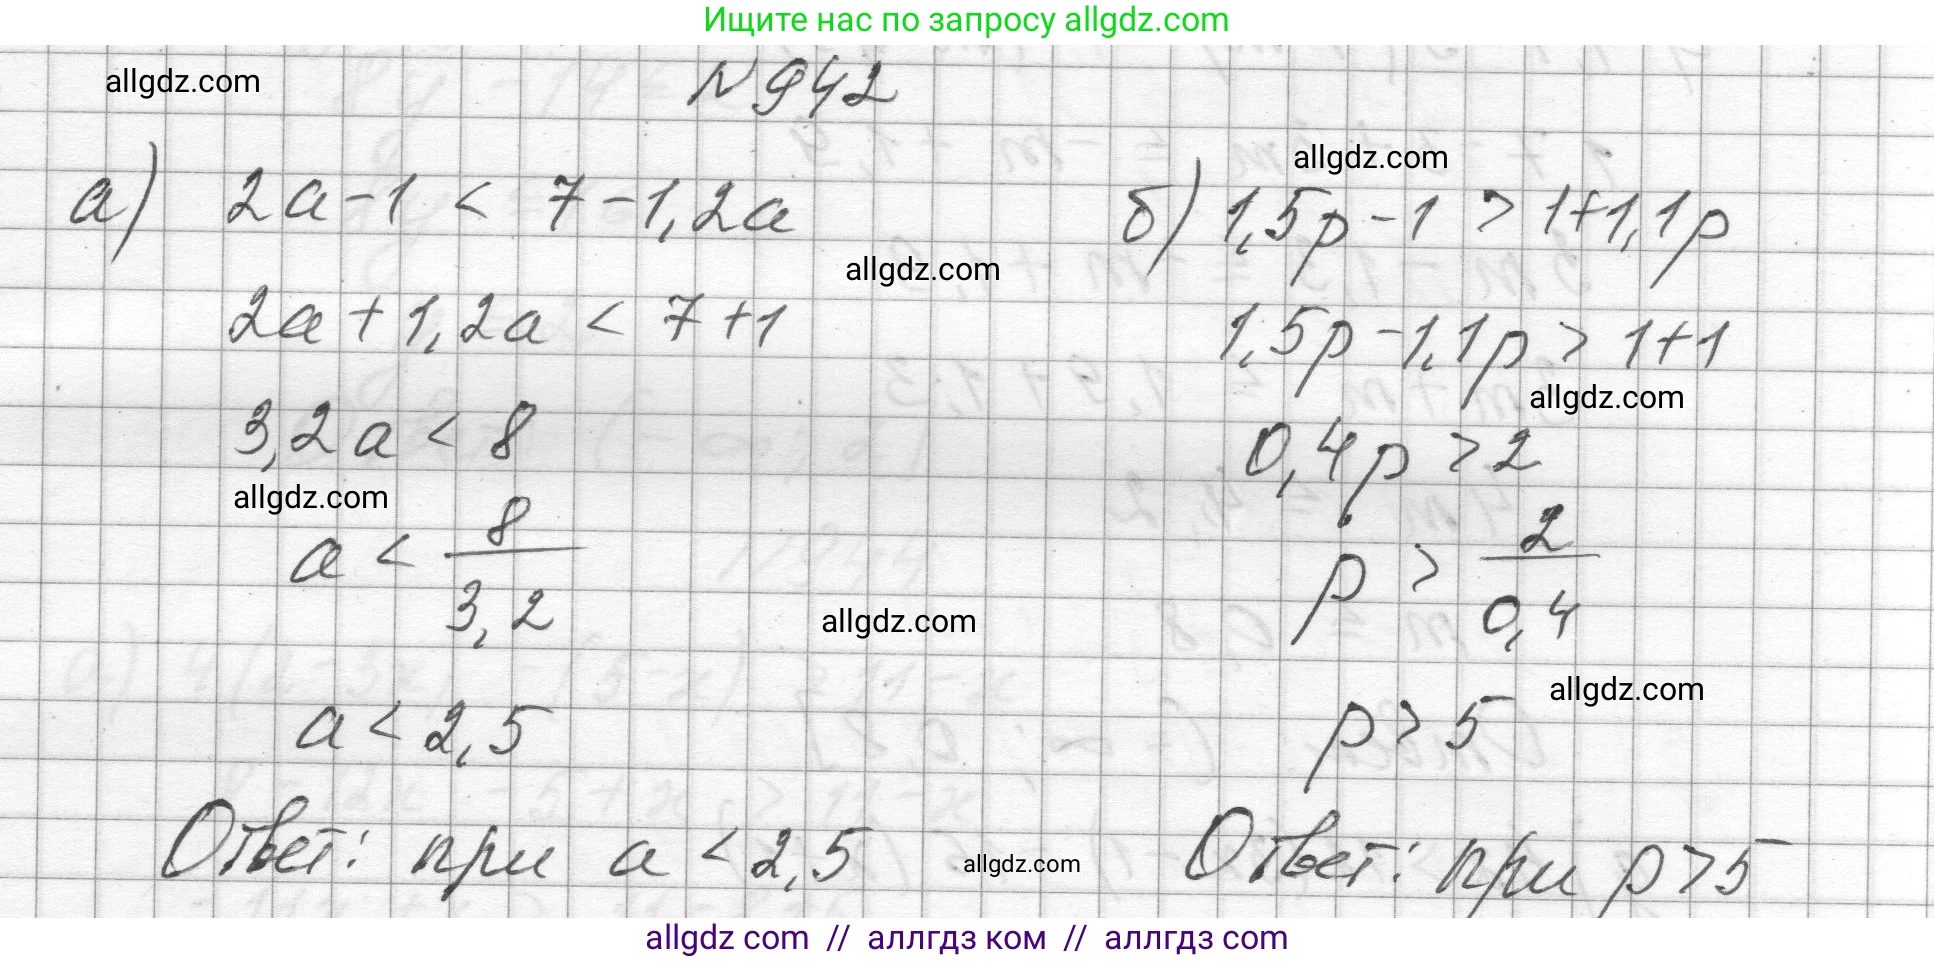 Ищите нас по запросу allgdz.com
allgdz.com
N 942
а) 2a - 1 < 7 - 1,2a
2a + 1,2a < 7 + 1
3,2a < 8
allgdz.com
a < 8/3,2
a < 2,5
Ответ: при a < 2,5
allgdz.com
allgdz.com
allgdz.com
allgdz.com
б) 1,5p - 1 > 1 + 1,1p
1,5p - 1,1p > 1 + 1
allgdz.com
0,4p > 2
p > 2/0,4
allgdz.com
p > 5
Ответ: при p > 5
allgdz com // аллгдз ком // аллгдз com